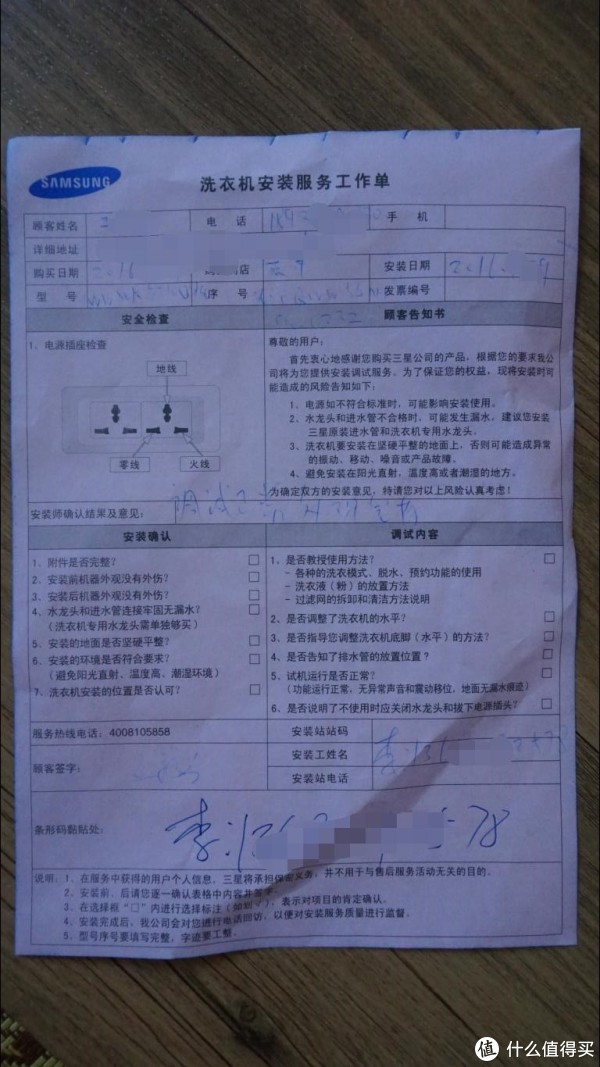 SAMSUNG
洗衣机安装服务工作单
顾客姓名 电 话 手 机
详细地址
购买日期 2016 安装日期 2016
型 号 序 号 发票编号
安全检查
1、电源插座检查
地线
零线 火线
顾客告知书
尊敬的用户：
首先衷心地感谢您购买三星公司的产品，根据您的要求我公
司将为您提供安装调试服务。为了保证您的权益，现将安装时可
能造成的风险告知如下：
1、电源如不符合标准时，可能影响安装使用。
2、水龙头和进水管不合格时，可能发生漏水，建议您安装
三星原装进水管和洗衣机专用水龙头。
3、洗衣机要安装在坚硬平整的地面上，否则可能造成异常
的振动、移动、噪音或产品故障。
4、避免安装在阳光直射，温度高或者潮湿的地方。
为确定双方的安装意见，特请您对以上风险认真考虑！
安装师确认结果及意见： 调试正常
安装确认
1、附件是否完整？ □
2、安装前机器外观没有外伤？ □
3、安装后机器外观没有外伤？ □
4、水龙头和进水管连接牢固无漏水？ □
（洗衣机专用水龙头需单独购买）
5、安装的地面是否坚硬平整？ □
6、安装的环境是否符合要求？ □
（避免阳光直射、温度高、潮湿环境）
7、洗衣机安装的位置是否认可？ □
调试内容
1、是否教授使用方法？ □
- 各种的洗衣模式、脱水、预约功能的使用
- 洗衣液（粉）的放置方法
- 过滤网的拆卸和清洁方法说明
2、是否调整了洗衣机的水平？ □
3、是否指导您调整洗衣机底脚（水平）的方法？ □
4、是否告知了排水管的放置位置？ □
5、试机运行是否正常？ □
（功能运行正常，无异常声音和震动移位，地面无漏水痕迹）
6、是否说明了不使用时应关闭水龙头和拔下电源插头？ □
服务热线电话：4008105858
安装站站码
安装工姓名 李
安装站电话
顾客签字：
条形码黏贴处： 李 78
说明：1、在服务中获得的用户个人信息，三星将承担保密义务，并不用于与售后服务活动无关的目的。
2、安装前、后请您逐一确认表格中内容并签字。
3、在选择框“□”内进行选择标注（如划√），表示对项目的肯定确认。
4、安装完成后，我公司会对您进行电话回访，以便对安装服务质量进行监督。
5、型号序号要填写完整，字迹要工整。
值 什么值得买